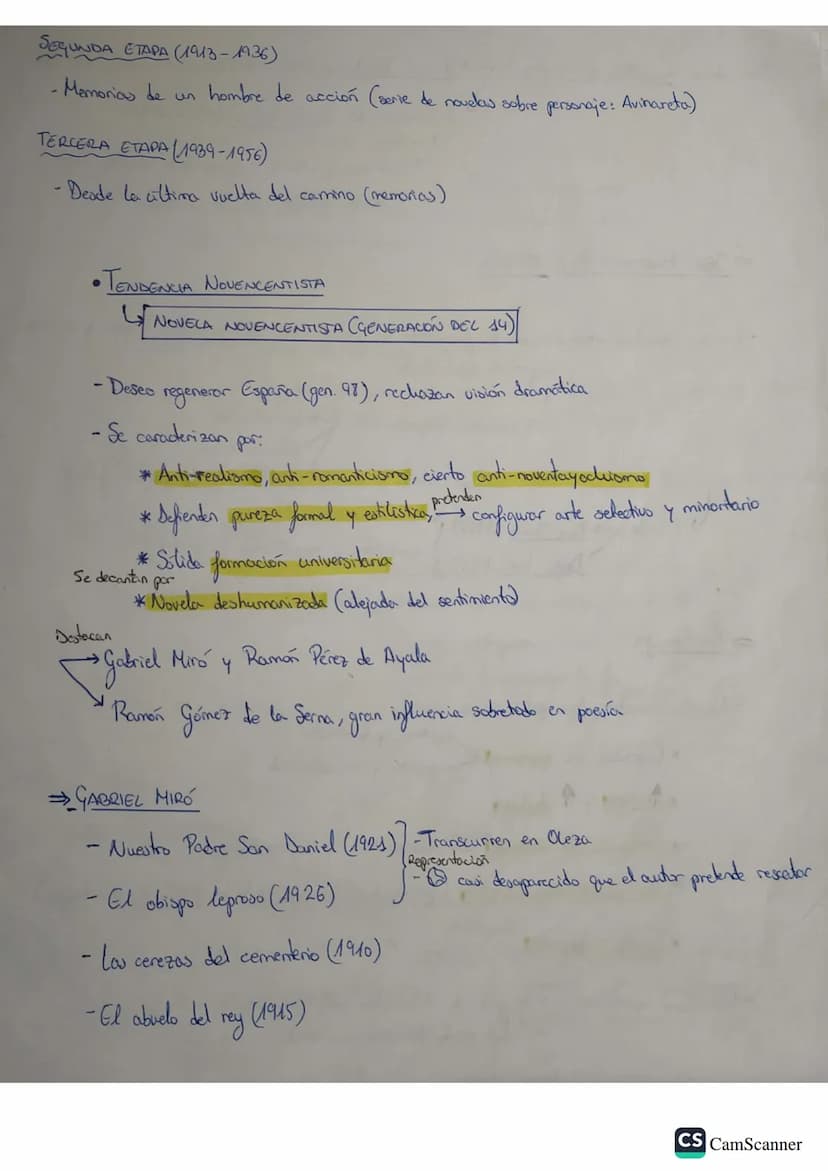 SEGUNDA ETAPA (1913-1936)
- Memorias de un hombre de acción (serie de novelas sobre personaje: Avinareta)
TERCERA ETAPA (1939-1956)
- Desde la última vuelta del camino (memorias)
• TENDENCIA NOVENCENTISTA
↳ NOVELA NOVENCENTISTA (GENERACIÓN DEL 14)
- Deseo regenerar España (gen. 98), rechazan visión dramática
- Se caracterizan por:
* Anti-realismo, anti-romanticismo, cierto anti-noventayochismo
* Defienden pureza formal y estilística, pretenden → configurar arte selectivo y minoritario
* Sólida formación universitaria
Se decantan por
* Novela deshumanizada (alejada del sentimiento)
Destacan
→ Gabriel Miró y Ramón Pérez de Ayala
Ramón Gómez de la Serna, gran influencia sobretodo en poesía
⇒ GABRIEL MIRÓ
- Nuestro Padre San Daniel (1921) - Transcurren en Oleza
Representación
- El obispo leproso (1926) - casi desaparecido que el autor pretende rescatar
- Las cerezas del cementerio (1910)
- El abuelo del rey (1915)
CS CamScanner